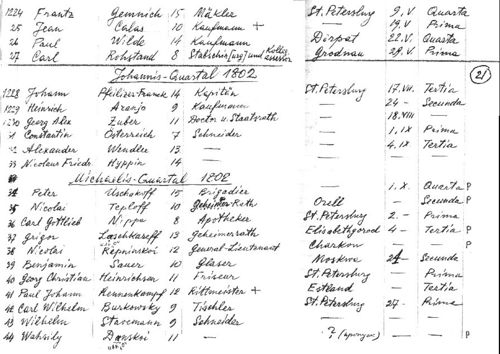 1224 Frantz Gemnich 15 Mäkler St. Petersburg 9. V Quarta
25 Jean Calas 10 Kaufmann + — 19. V Prima
26 Paul Wilde 14 Kaufmann Dörpat 22. V. Quarta
27 Carl Rohstand 8 Stabschir[urg] und Grodnau 29. V. Prima
Johannis-Quartal 1802
21
1228 Johann 14 Kapitän St. Petersburg 17. VII. Tertia
1229 Heinrich Aranjo 9 Kaufmann — 24 - Secunda
1230 Georg Alex Zuber 11 Doctor u. Staatsrath — 18. VIII —
31 Constantin Österreich 7 Schneider — 1. IX Prima
32 Alexander Wendler 13 — — 4. IX Tertia
33 Nicolaus Friedr. Hyppin 14
Michaelis-Quartal 1802
34 Peter Uschakoff 15 Brigadier — 1. X. Quarta P
35 Nicolai Teploff 10 geheimer Rath Orell — Secunda P
36 Carl Gottlieb Nippa 8 Apotheker St. Petersburg 2. - Prima
37 Grigor Laschkareff 13 geheimerath Elisabethgorod 4 - Tertia P
38 Nicolai Repninskoi 12 General-Lieutenant Charkow P
39 Benjamin Sauer 10 Glaser Moskwa 24 - Secunda
40 Georg Christian Heinrichsen 11 Friseur St. Petersburg — Prima
41 Paul Johann Rennenkampf 12 Rittmeister + Estland — Tertia
42 Carl Wilhelm Burkowsky 9 Tischler St. Petersburg 27 - Prima
43 Wilhelm 9 Schneider —
44 Wassily Danskoi 11 — ? P